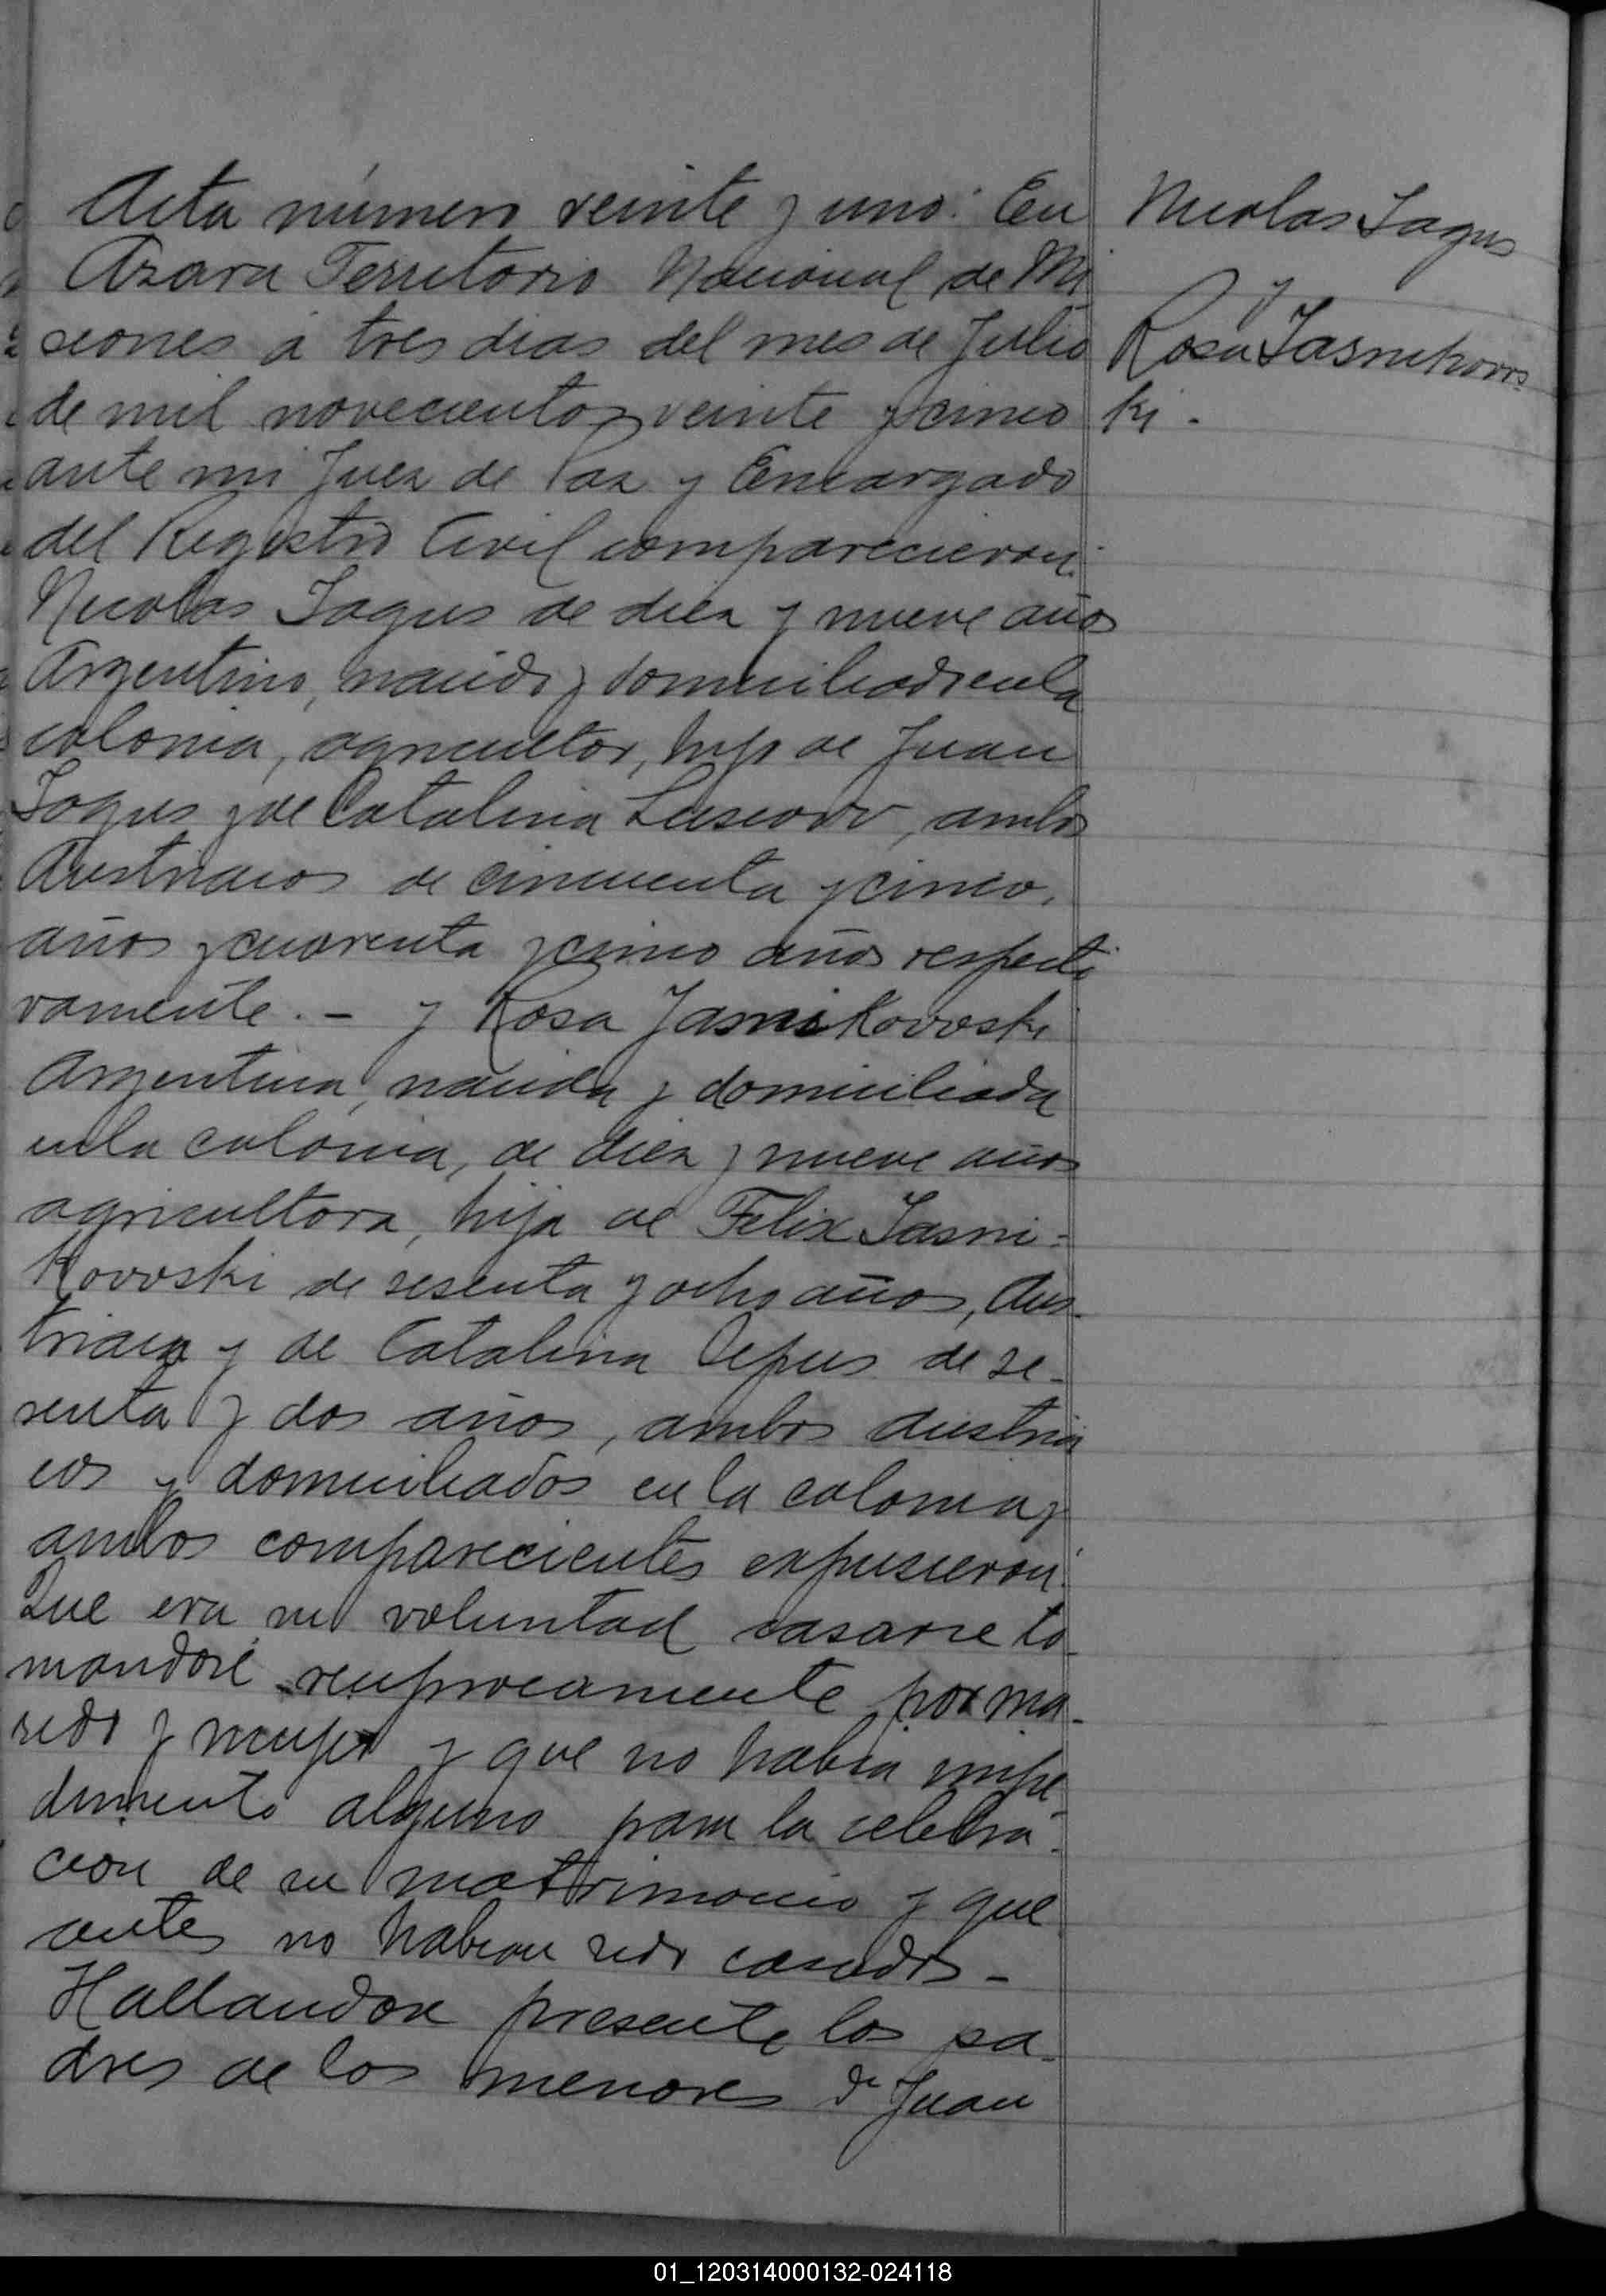 Acta número veinte y uno: En
Azara Territorio Nacional de Mi
siones á tres dias del mes de Julio
de mil novecientos veinte y cinco
ante mi Juez de Paz y Encargado
del Registro Civil comparecieron:
Nicolas Jagus de diez y nueve años
Argentino, nacido y domiciliado en la
colonia, agricultor, hijo de Juan
Jagus y de Catalina, ambos
Austriacos de cincuenta y cinco
años y cuarenta y cinco años respecti
vamente. - y Rosa Jasnikovoski
Argentina, nacida y domiciliada
en la colonia, de diez y nueve años
agricultora, hija de Felix Jasni=
kovoski de sesenta y ocho años, Aus-
triaco y de Catalina de se-
senta y dos años, ambos austria
cos y domiciliados en la colonia y
ambos comparecientes expusieron:
Que era su voluntad casarse to-
mandose reciprocamente por ma-
rido y mujer y que no habia impe-
dimento alguno para la celebra-
cion de su matrimonio y que
antes no habian sido casados -
Hallandose presente los pa-
dres de los menores Dn Juan
Nicolas Jagus
y
Rosa Jasnikovos
ki -
01_120314000132-024118